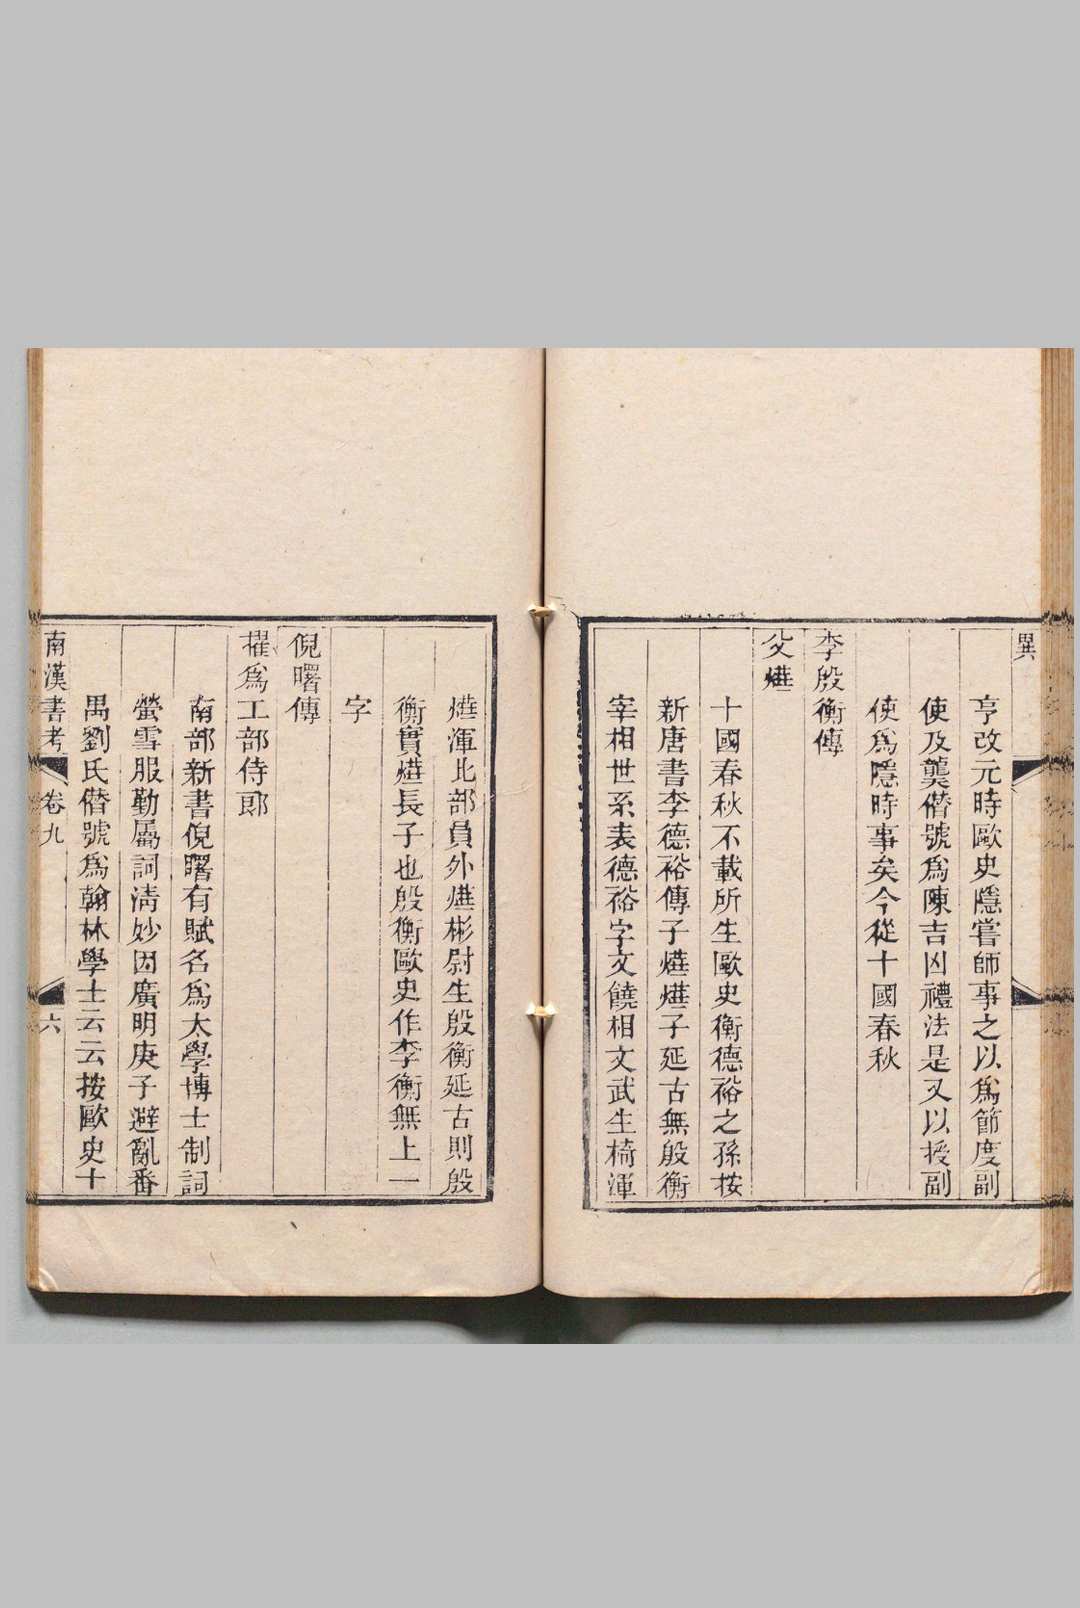 異
亨改元時歐史隱嘗師事之以爲節度副
使及龑僣號爲陳吉凶禮法是又以授副
使爲隱時事矣今從十國春秋
李殷衡傳
父燁
十國春秋不載所生歐史衡德裕之孫按
新唐書李德裕傳子燁燁子延古無殷衡
宰相世系表德裕字文饒相文武生椅渾
燁渾北部員外燁彬尉生殷衡延古則殷
衡實燁長子也殷衡歐史作李衡無上一
字
倪曙傳
擢爲工部侍郎
南部新書倪曙有賦名爲太學博士制詞
螢雪服勤屬詞淸妙因廣明庚子避亂番
禺劉氏僣號爲翰林學士云云按歐史十
南漢書考 卷九 六